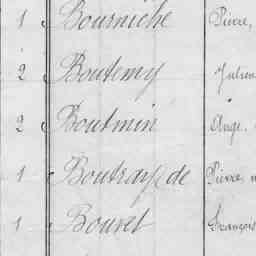 1 Bourniche Pierre,
2 Boutemy Julien
2 Boutmin Ange.
1 Boutray de Pierre
1 Bouvet François